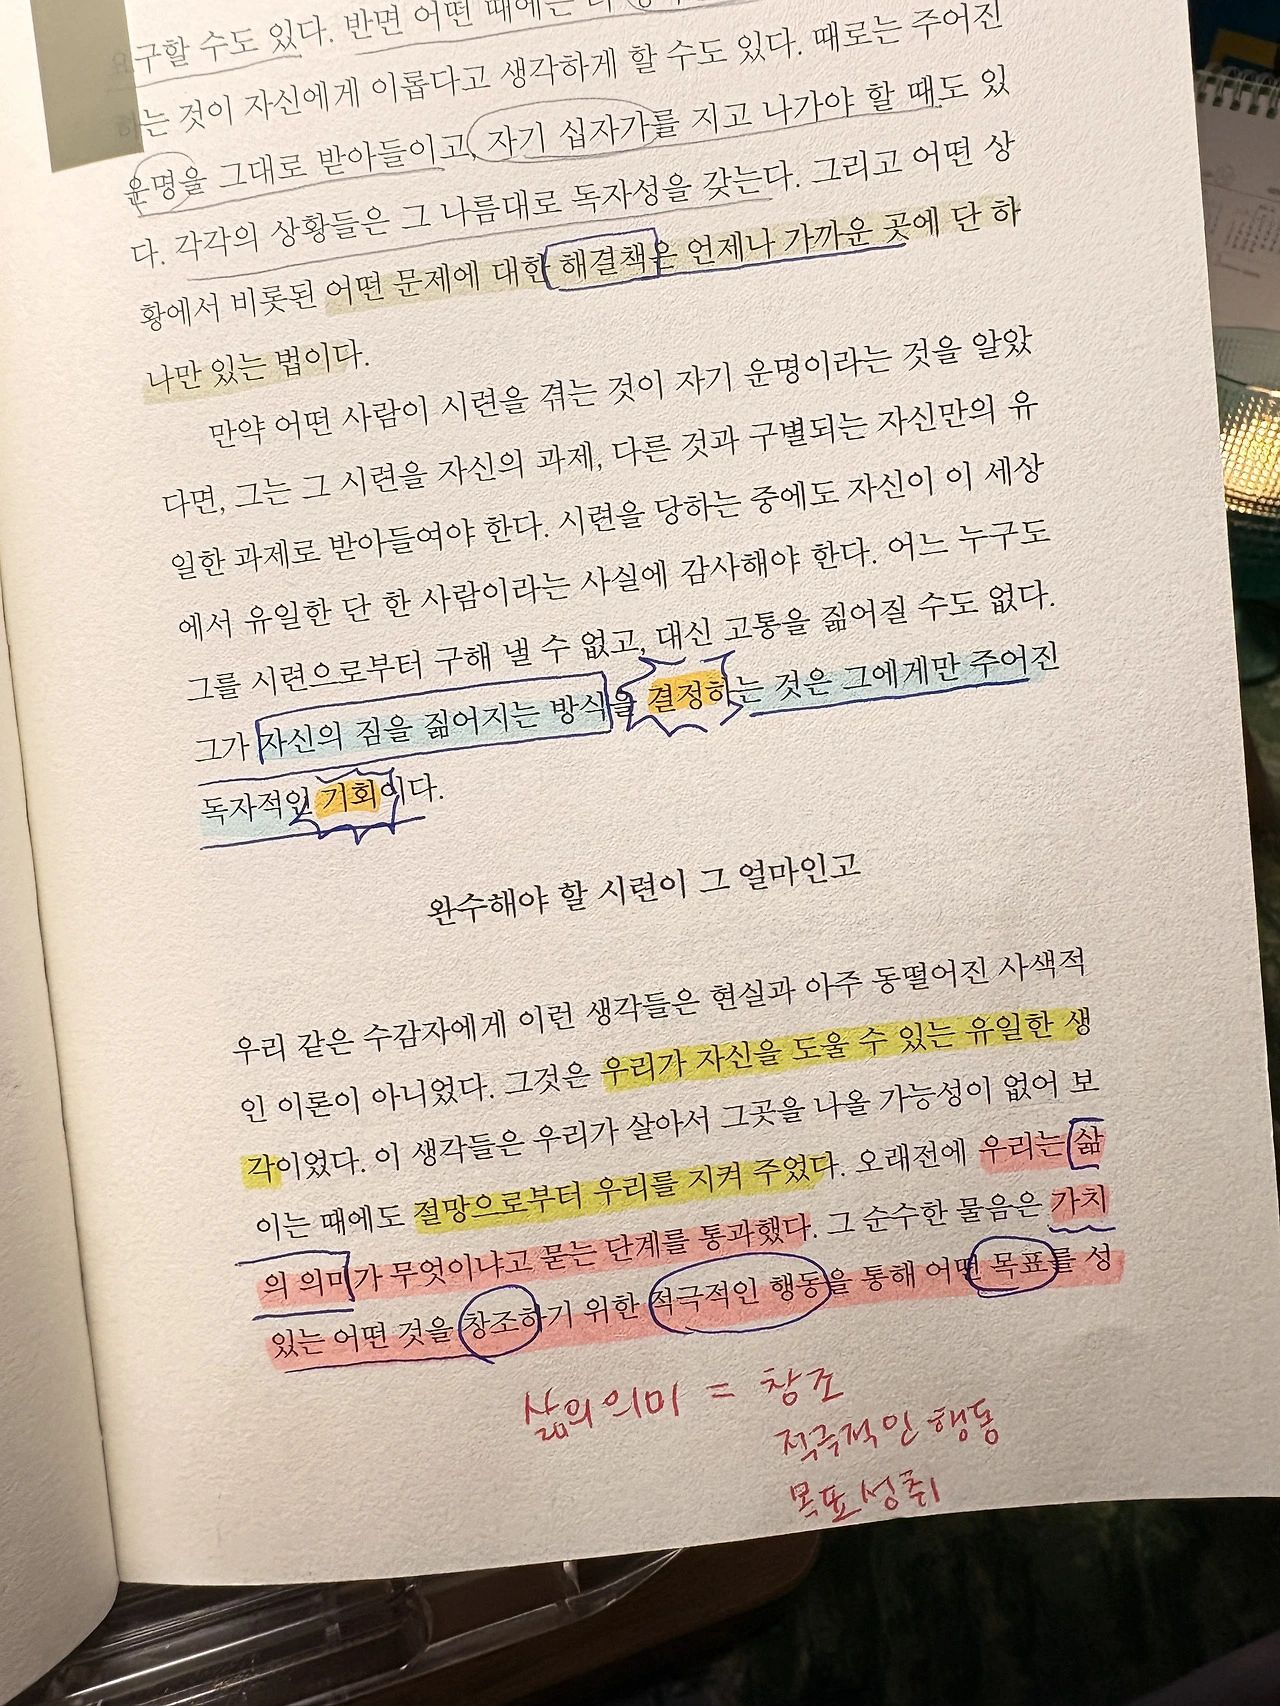 구할 수도 있다. 반면 어떤 때에는
는 것이 자신에게 이롭다고 생각하게 할 수도 있다. 때로는 주어진
운명을 그대로 받아들이고, 자기 십자가를 지고 나가야 할 때도 있
다. 각각의 상황들은 그 나름대로 독자성을 갖는다. 그리고 어떤 상
황에서 비롯된 어떤 문제에 대한 해결책은 언제나 가까운 곳에 단 하
나만 있는 법이다.
만약 어떤 사람이 시련을 겪는 것이 자기 운명이라는 것을 알았
다면, 그는 그 시련을 자신의 과제, 다른 것과 구별되는 자신만의 유
일한 과제로 받아들여야 한다. 시련을 당하는 중에도 자신이 이 세상
에서 유일한 단 한 사람이라는 사실에 감사해야 한다. 어느 누구도
그를 시련으로부터 구해 낼 수 없고, 대신 고통을 짊어질 수도 없다.
그가 자신의 짐을 짊어지는 방식을 결정하는 것은 그에게만 주어진
독자적인 기회이다.
완수해야 할 시련이 그 얼마인고
우리 같은 수감자에게 이런 생각들은 현실과 아주 동떨어진 사색적
인 이론이 아니었다. 그것은 우리가 자신을 도울 수 있는 유일한 생
각이었다. 이 생각들은 우리가 살아서 그곳을 나올 가능성이 없어 보
이는 때에도 절망으로부터 우리를 지켜 주었다. 오래전에 우리는 삶
의 의미가 무엇이냐고 묻는 단계를 통과했다. 그 순수한 물음은 가치
있는 어떤 것을 창조하기 위한 적극적인 행동을 통해 어떤 목표를 성
삶의 의미 = 창조
적극적인 행동
목표 성취